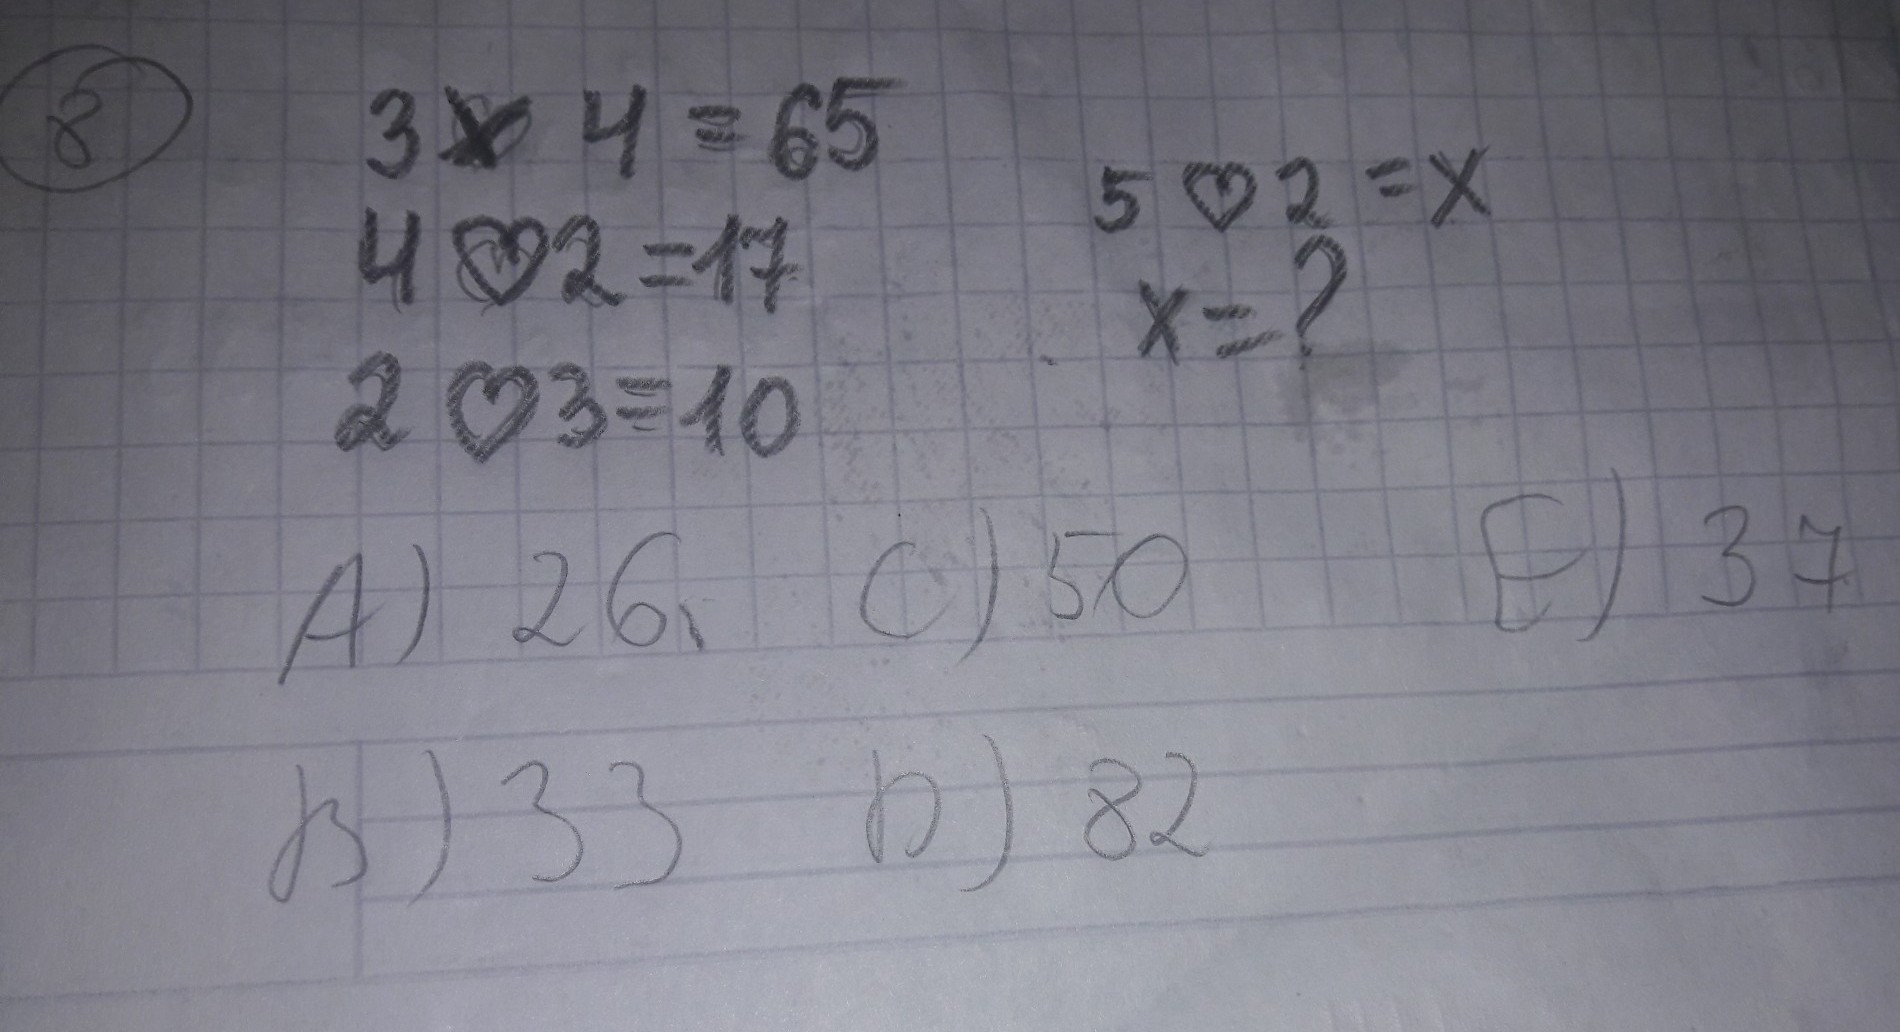 8
3 ♡ 4 = 65
4 ♡ 2 = 17
2 ♡ 3 = 10
5 ♡ 2 = x
x = ?
A) 26 C) 50 E) 37
B) 33 D) 82